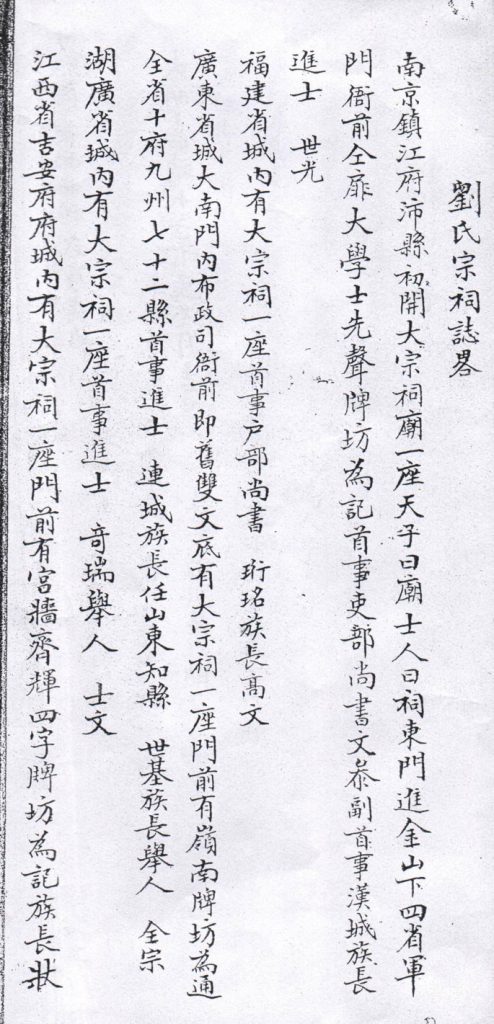 劉氏宗祠誌畧
南京鎮江府沛縣初開大宗祠廟一座天子曰廟士人曰祠東門進金山下四省軍
門衙前仝扉大學士先聲牌坊為記首事吏部尚書文叅副首事漢城族長
進士 世光
福建省城內有大宗祠一座首事户部尚書 珩珆族長高文
廣東省城大南門內布政司衙前即舊雙文底有大宗祠一座門前有嶺南牌坊為通
全省十府九州七十二縣首事進士 連城族長任山東知縣 世基族長舉人 全宗
湖廣省城內有大宗祠一座首事進士 奇瑞舉人 士文
江西省吉安府府城內有大宗祠一座門前有宮牆齊輝四字牌坊為記族長狀